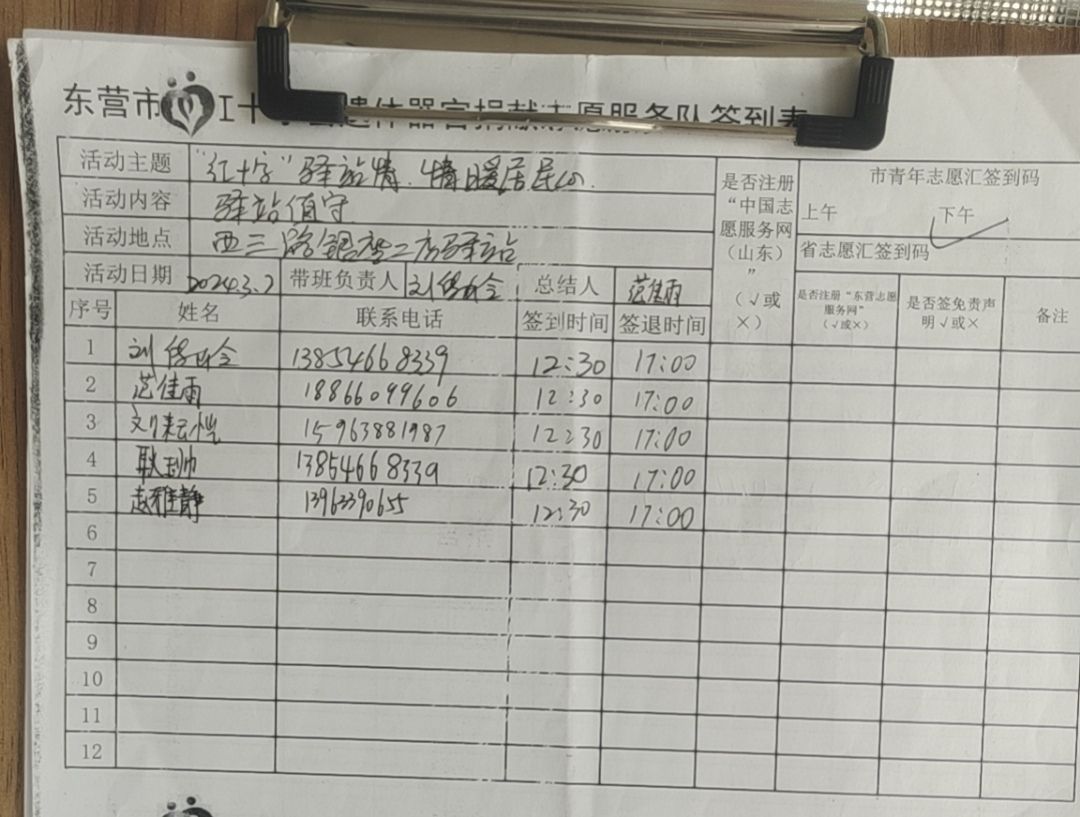 东营市 红十字会遗体器官捐献志愿服务队签到表
活动主题 "红十字"驿站情.情暖居民心. 是否注册“中国志愿服务网（山东）”（√或×） 市青年志愿汇签到码
活动内容 驿站值守 上午 下午 ✓
活动地点 西三路银座二店驿站 省志愿汇签到码
活动日期 2024.3.7 带班负责人 刘 总结人 范佳雨 是否注册“东营志愿服务网”（√或×） 是否签免责声明√或× 备注
序号 姓名 联系电话 签到时间 签退时间
1 刘 13854668339 12:30 17:00
2 范佳雨 18866099606 12:30 17:00
3 刘耘恺 15963881987 12:30 17:00
4 耿玤帅 13854668339 12:30 17:00
5 赵雅静 13963390655 12:30 17:00
6
7
8
9
10
11
12